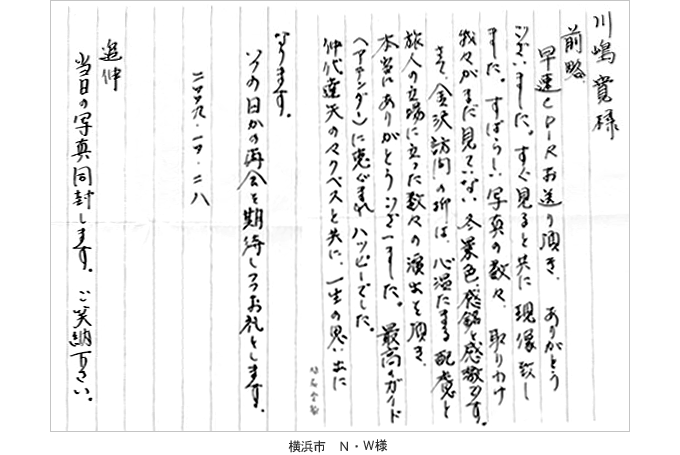 川嶋寛様
前略
早速CDRお送り頂き、ありがとう
ございました。すぐ見ると共に現像致し
ました。すばらしい写真の数々、取りわけ
我々がまだ見ていない冬景色、感銘と感激です。
さて金沢訪問の折は、心温たまる配慮と
旅人の立場に立った数々の演出を頂き、
本当にありがとうございました。最高のガイド
(アテンダー)に恵まれハッピーでした。
仲代達矢のマクベスと共に、一生の思い出に
なります。
いつの日かの再会を期待しつつお礼とします。
二〇〇九・一〇・二八
追伸
当日の写真同封します。ご笑納下さい。
横浜市 N・W様